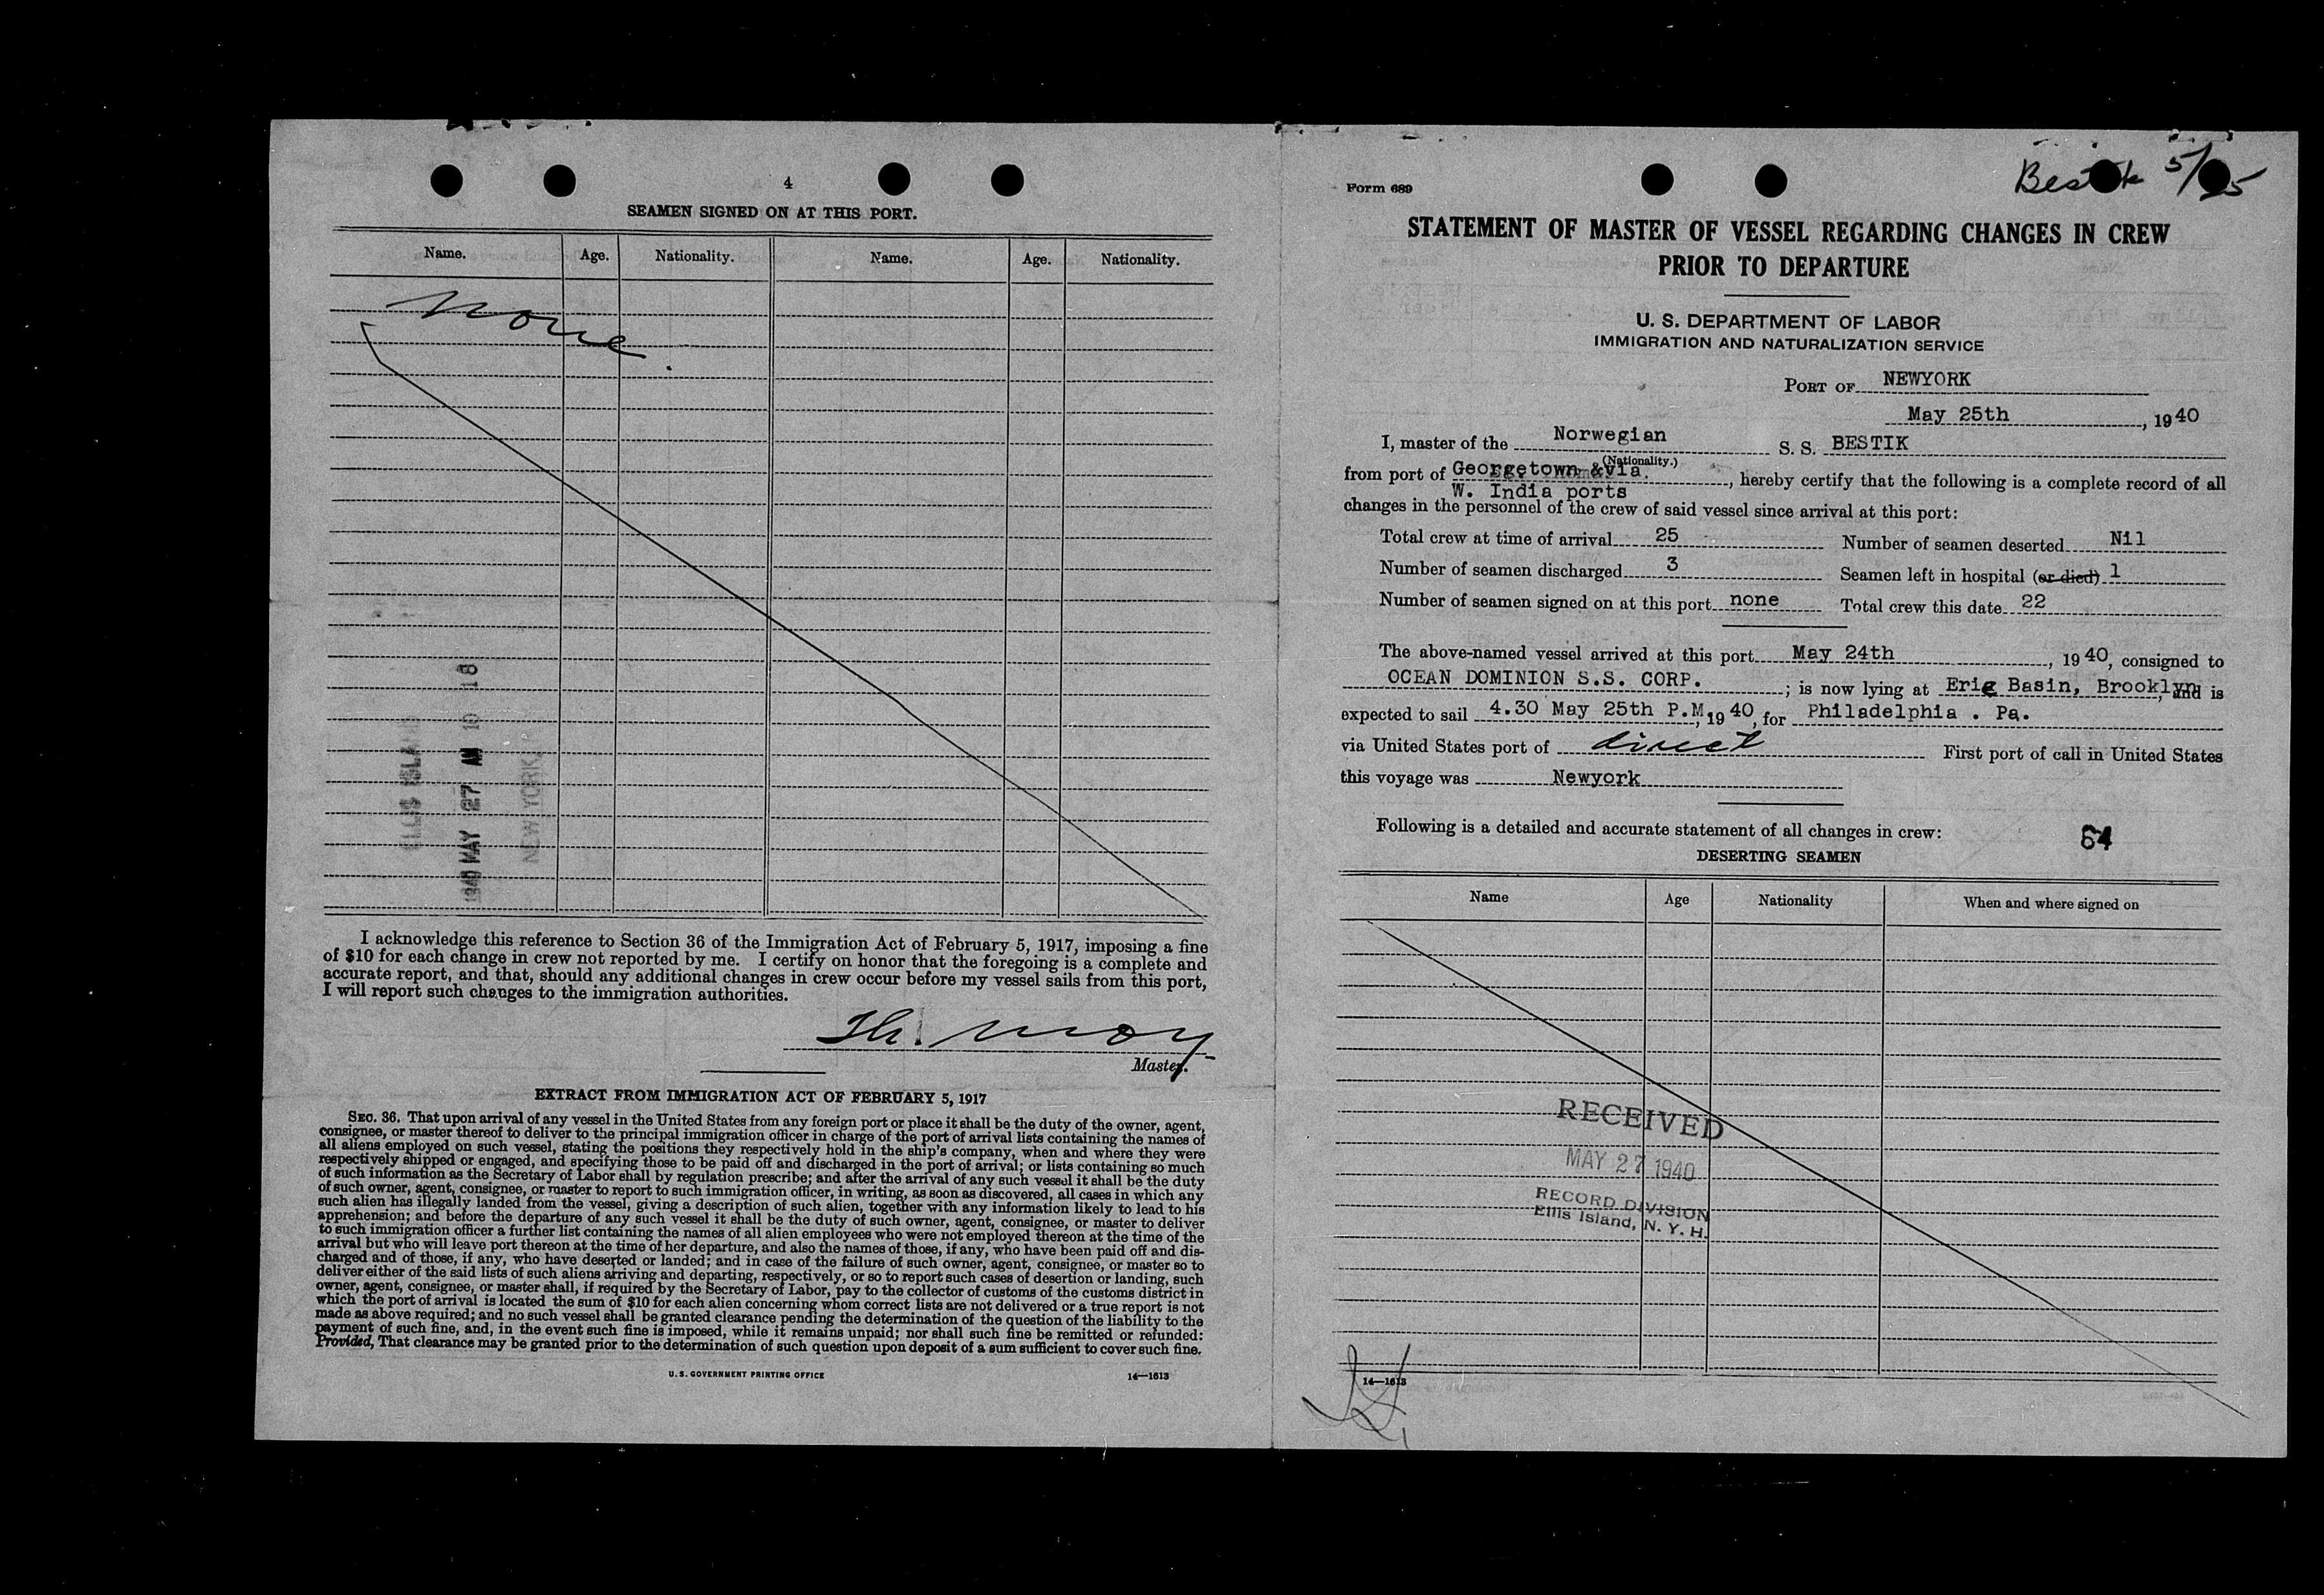 4
SEAMEN SIGNED ON AT THIS PORT.
Name. Age. Nationality. Name. Age. Nationality.
None.
ELLIS ISLAND
1940 MAY 27 AM 10 18
NEW YORK
I acknowledge this reference to Section 36 of the Immigration Act of February 5, 1917, imposing a fine
of $10 for each change in crew not reported by me. I certify on honor that the foregoing is a complete and
accurate report, and that, should any additional changes in crew occur before my vessel sails from this port,
I will report such changes to the immigration authorities.
Th. Moy
Master.
EXTRACT FROM IMMIGRATION ACT OF FEBRUARY 5, 1917
SEC. 36. That upon arrival of any vessel in the United States from any foreign port or place it shall be the duty of the owner, agent,
consignee, or master thereof to deliver to the principal immigration officer in charge of the port of arrival lists containing the names of
all aliens employed on such vessel, stating the positions they respectively hold in the ship's company, when and where they were
respectively shipped or engaged, and specifying those to be paid off and discharged in the port of arrival; or lists containing so much
of such information as the Secretary of Labor shall by regulation prescribe; and after the arrival of any such vessel it shall be the duty
of such owner, agent, consignee, or master to report to such immigration officer, in writing, as soon as discovered, all cases in which any
such alien has illegally landed from the vessel, giving a description of such alien, together with any information likely to lead to his
apprehension; and before the departure of any such vessel it shall be the duty of such owner, agent, consignee, or master to deliver
to such immigration officer a further list containing the names of all alien employees who were not employed thereon at the time of the
arrival but who will leave port thereon at the time of her departure, and also the names of those, if any, who have been paid off and dis-
charged and of those, if any, who have deserted or landed; and in case of the failure of such owner, agent, consignee, or master so to
deliver either of the said lists of such aliens arriving and departing, respectively, or so to report such cases of desertion or landing, such
owner, agent, consignee, or master shall, if required by the Secretary of Labor, pay to the collector of customs of the customs district in
which the port of arrival is located the sum of $10 for each alien concerning whom correct lists are not delivered or a true report is not
made as above required; and no such vessel shall be granted clearance pending the determination of the question of the liability to the
payment of such fine, and, in the event such fine is imposed, while it remains unpaid; nor shall such fine be remitted or refunded:
Provided, That clearance may be granted prior to the determination of such question upon deposit of a sum sufficient to cover such fine.
U. S. GOVERNMENT PRINTING OFFICE 14—1613
Form 689
Bestik 5/25
STATEMENT OF MASTER OF VESSEL REGARDING CHANGES IN CREW
PRIOR TO DEPARTURE
U. S. DEPARTMENT OF LABOR
IMMIGRATION AND NATURALIZATION SERVICE
PORT OF NEWYORK
May 25th, 1940
I, master of the Norwegian S. S. BESTIK
(Nationality.)
from port of Georgetown &via, hereby certify that the following is a complete record of all
W. India ports
changes in the personnel of the crew of said vessel since arrival at this port:
Total crew at time of arrival 25 Number of seamen deserted Nil
Number of seamen discharged 3 Seamen left in hospital (or died) 1
Number of seamen signed on at this port none Total crew this date 22
The above-named vessel arrived at this port May 24th, 1940, consigned to
OCEAN DOMINION S.S. CORP.; is now lying at Erie Basin, Brooklyn, and is
expected to sail 4.30 May 25th P.M, 1940, for Philadelphia . Pa.
via United States port of direct First port of call in United States
this voyage was Newyork
Following is a detailed and accurate statement of all changes in crew:
64
DESERTING SEAMEN
Name Age Nationality When and where signed on
RECEIVED
MAY 27 1940
RECORD DIVISION
Ellis Island, N. Y. H.
14—1613